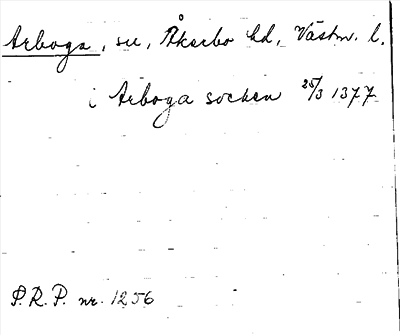 Arboga, sn, Åkerbo hd, Västm. l.
i Arboga socken 25/3 1377
P.R.P. nr. 1256